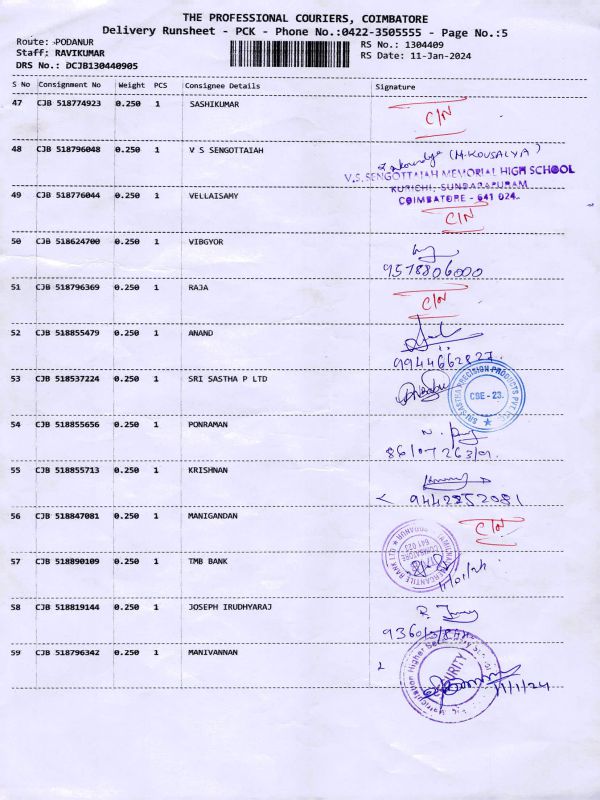 THE PROFESSIONAL COURIERS, COIMBATORE
Delivery Runsheet - PCK - Phone No.:0422-3505555 - Page No.:5
Route: PODANUR
Staff: RAVIKUMAR
DRS No.: DCJB130440905
RS No.: 1304409
RS Date: 11-Jan-2024
S No Consignment No Weight PCS Consignee Details Signature
47 CJB 518774923 0.250 1 SASHIKUMAR C/N
48 CJB 518796048 0.250 1 V S SENGOTTAIAH (M.KOUSALYA)
V.S.SENGOTTAIAH MEMORIAL HIGH SCHOOL
KURICHI, SUNDARAPURAM
COIMBATORE - 641 024.
49 CJB 518776044 0.250 1 VELLAISAMY C/N
50 CJB 518624700 0.250 1 VIBGYOR
9578806000
51 CJB 518796369 0.250 1 RAJA C/N
52 CJB 518855479 0.250 1 ANAND
9944662827
53 CJB 518537224 0.250 1 SRI SASTHA P LTD
SRI SASTHA PRECISION PRODUCTS PVT LTD
CBE - 23.
54 CJB 518855656 0.250 1 PONRAMAN
55 CJB 518855713 0.250 1 KRISHNAN
9442852081
56 CJB 518847081 0.250 1 MANIGANDAN C/N
57 CJB 518890109 0.250 1 TMB BANK
TAMILNAD MERCANTILE BANK LTD
PODANUR
COIMBATORE
641 023
11/01/24
58 CJB 518819144 0.250 1 JOSEPH IRUDHYARAJ
59 CJB 518796342 0.250 1 MANIVANNAN
Matriculation Higher Secondary
SECURITY
11/1/24